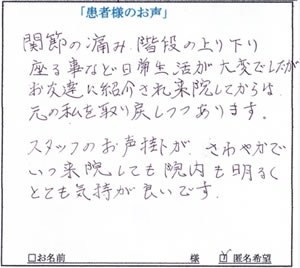 「患者様のお声」
関節の痛み、階段の上り下り
座る事など日常生活が大変でしたが
お友達に紹介され来院してからは
元の私を取り戻しつつあります。
スタッフのお声掛けが、さわやかで
いつ来院しても院内も明るく
とても気持が良いです。
□お名前 様 ☑匿名希望